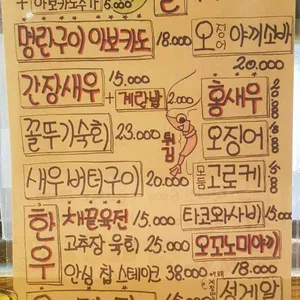 + 아보카도추가 5.000
명란구이 아보카도 18.000
오징어 야끼소바 20.000
간장새우 15.000
+ 계란밥 2.000
꼴뚜기숙회 23.000
튀김
홍새우
오징어
모듬 고로케
새우버터구이 20.000
한우
채끝육전 15.000
고추장 육회 25.000
안심 찹 스테이크 38.000
타코와사비 15.000
오꼬노미야끼 18.000
성게알